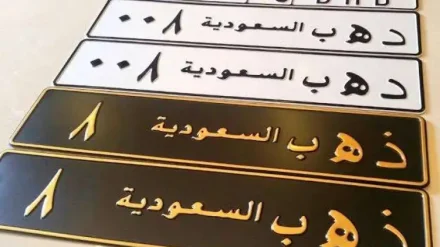 د هـ ب السعودية ٠٠٨
د هـ ب السعودية ٠٠٨
ذ هـ ب السعودية ٨
ذ هـ ب السعودية ٨